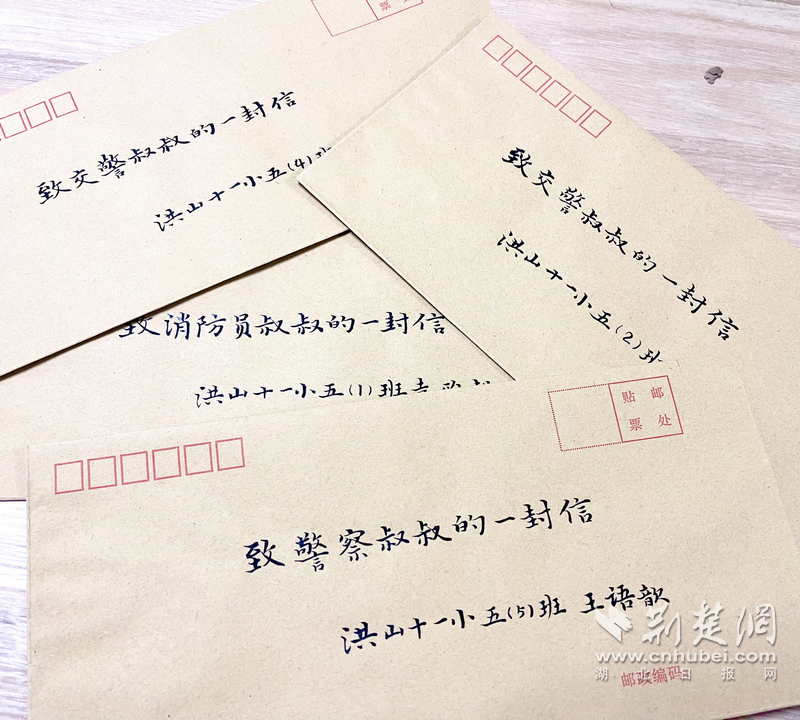 票处
致交警叔叔的一封信
洪山十一小五(4)班
致交警叔叔的一封信
洪山十一小五(2)班
致消防员叔叔的一封信
洪山十一小五(1)班
贴 邮
票 处
致警察叔叔的一封信
洪山十一小五(5)班 王语歆
荆楚网
www.cnhubei.com
湖北日报网
邮政编码